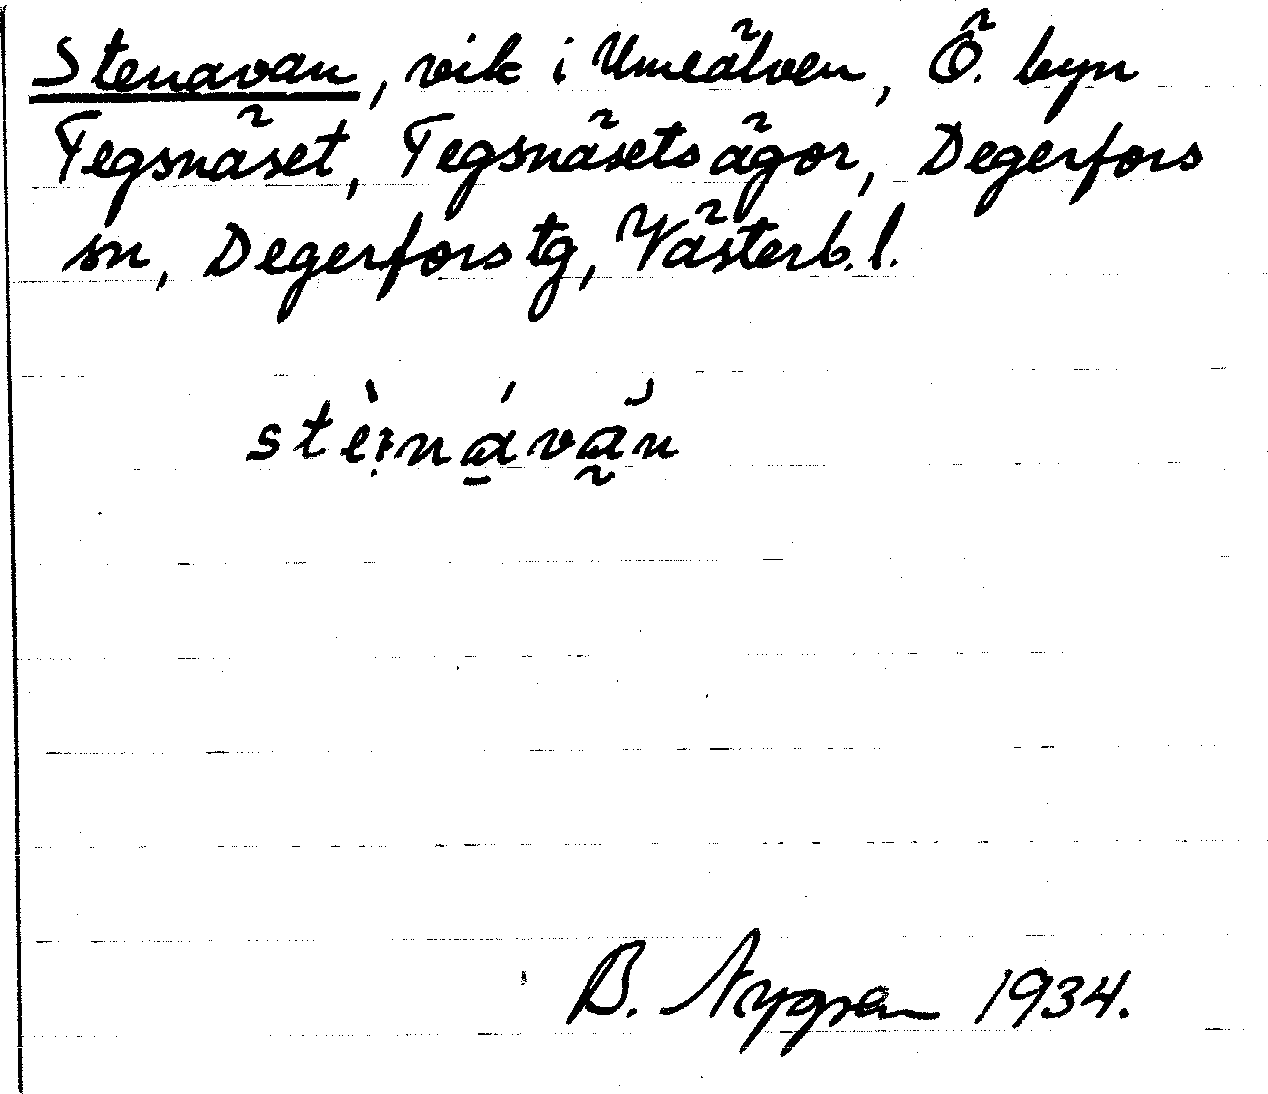 Stenavan, vik i Umeälven, Ö. byn
Tegsnäset, Tegsnäsets ägor, Degerfors
sn, Degerfors tg, Västerb. l.
stè:ná̠vа̰́n
B. Nygren 1934.